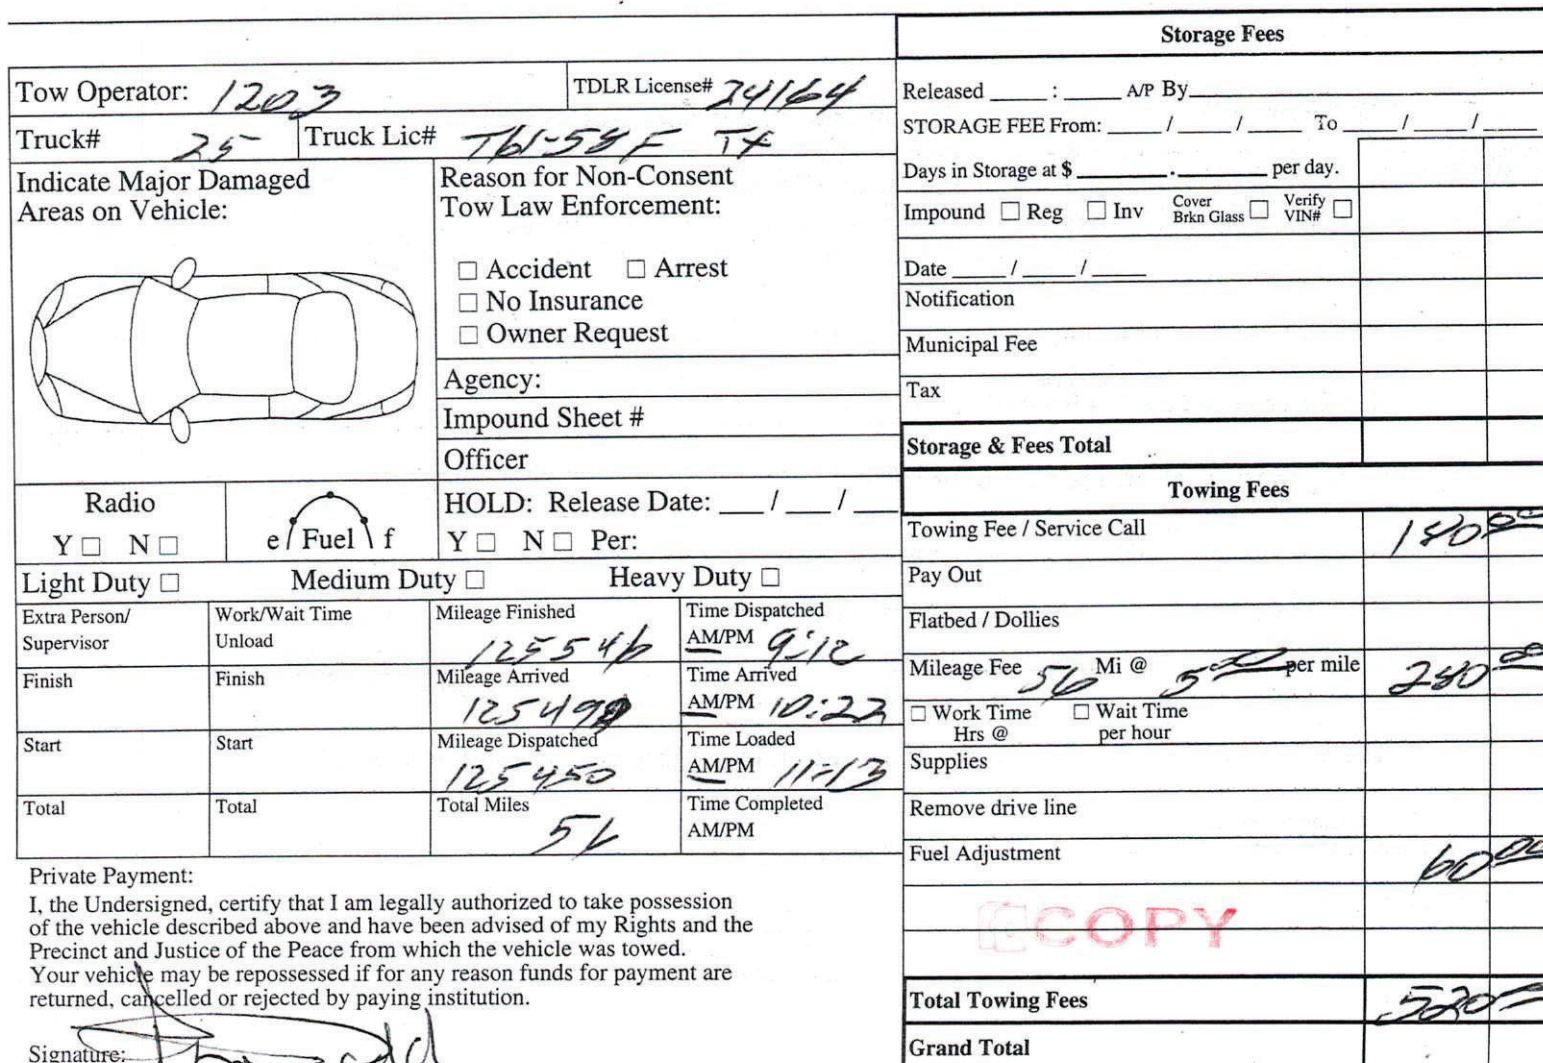 Storage Fees
Tow Operator: 1203 TDLR License# 24164
Truck# 25 Truck Lic# T61-58F TX
Indicate Major Damaged
Areas on Vehicle:
Radio
Y □ N □
e / Fuel \ f
Reason for Non-Consent
Tow Law Enforcement:
□ Accident □ Arrest
□ No Insurance
□ Owner Request
Agency:
Impound Sheet #
Officer
HOLD: Release Date: ___ / ___ / ___
Y □ N □ Per:
Light Duty □ Medium Duty □ Heavy Duty □
Extra Person/
Supervisor
Work/Wait Time
Unload
Mileage Finished
125546
Time Dispatched
AM/PM 9:12
Finish
Finish
Mileage Arrived
Time Arrived
AM/PM 10:22
Start
Start
Mileage Dispatched
125450
Time Loaded
AM/PM 11:13
Total
Total
Total Miles
56
Time Completed
AM/PM
Private Payment:
I, the Undersigned, certify that I am legally authorized to take possession
of the vehicle described above and have been advised of my Rights and the
Precinct and Justice of the Peace from which the vehicle was towed.
Your vehicle may be repossessed if for any reason funds for payment are
returned, cancelled or rejected by paying institution.
Signature:
Released _____ : _____ A/P By
STORAGE FEE From: _____ / _____ / _____ To _____ / _____ / _____
Days in Storage at $ ________ . ________ per day.
Impound □ Reg □ Inv Cover Brkn Glass □ Verify VIN# □
Date _____ / _____ / _____
Notification
Municipal Fee
Tax
Storage & Fees Total
Towing Fees
Towing Fee / Service Call 180 00
Pay Out
Flatbed / Dollies
Mileage Fee 56 Mi @ 5 00 per mile 280 00
□ Work Time □ Wait Time
Hrs @ per hour
Supplies
Remove drive line
Fuel Adjustment 60 00
COPY
Total Towing Fees 520
Grand Total